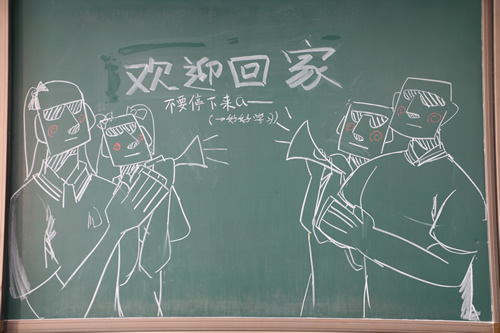 欢迎回家
不要停下来a——
(→好好学习)